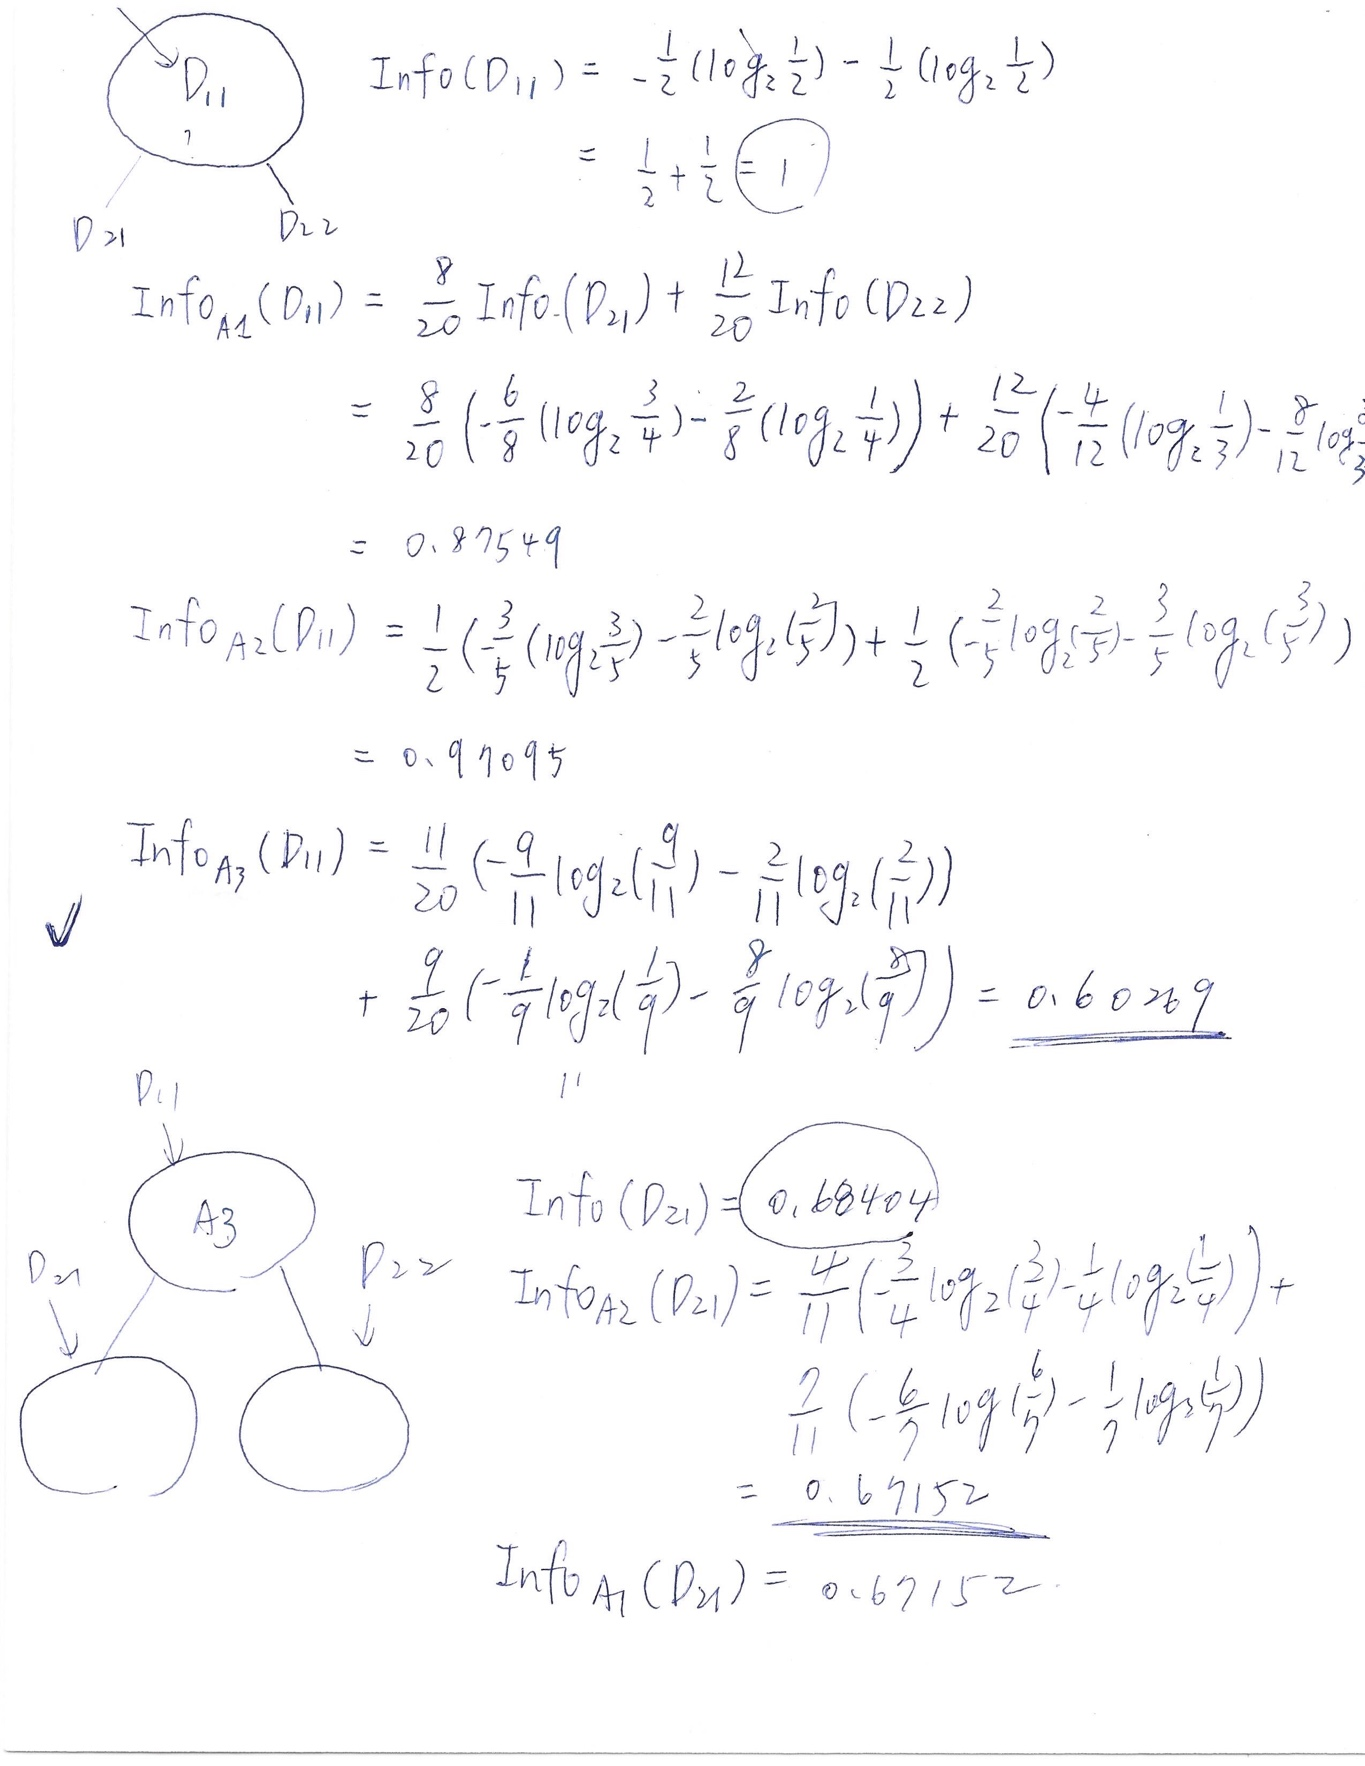 D₁₁
?
D₂₁ D₂₂
Info(D₁₁) = -1/2 (log₂ 1/2) - 1/2 (log₂ 1/2)
= 1/2 + 1/2 = 1
Info_A1 (D₁₁) = 8/20 Info(D₂₁) + 12/20 Info(D₂₂)
= 8/20 (-6/8 (log₂ 3/4) - 2/8 (log₂ 1/4)) + 12/20 (-4/12 (log₂ 1/3) - 8/12 log
= 0.87549
Info_A2 (D₁₁) = 1/2 (-3/5 (log₂ 3/5) - 2/5 log₂ (2/5)) + 1/2 (-2/5 log₂ (2/5) - 3/5 log₂ (3/5))
= 0.97095
Info_A3 (D₁₁) = 11/20 (-9/11 log₂ (9/11) - 2/11 log₂ (2/11))
+ 9/20 (-1/9 log₂ (1/9) - 8/9 log₂ (8/9)) = 0.60269
D₁₁
A3
D₂₁ D₂₂
Info (D₂₁) = 0.68404
Info_A2 (D₂₁) = 4/11 (-3/4 log₂ (3/4) - 1/4 log₂ (1/4)) +
7/11 (-6/7 log (6/7) - 1/7 log₂ (1/7))
= 0.67152
Info_A1 (D₂₁) = 0.67152